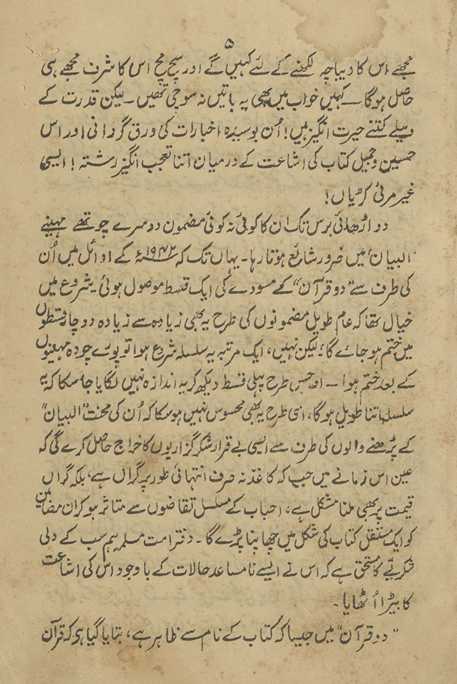 ۵
مجھے اس کا دیباچہ لکھنے کے لئے کہیں گے اور سچ مچ اس کا شرف مجھے ہی
حاصل ہوگا۔ کہیں خواب میں بھی یہ باتیں نہ سوجی تھیں۔ لیکن قدرت کے
وسیلے کتنے حیرت انگیز ہیں! اُن بوسیدہ اخبارات کی ورق گردانی اور اس
حسین و جمیل کتاب کی اشاعت کے درمیان اتنا تعجب انگیز رشتہ! ایسی
غیر مرئی کڑیاں!
دو اڑھائی برس تک ان کا کوئی نہ کوئی مضمون دوسرے چوتھے مہینے
البیان میں ضرور شائع ہوتا رہا۔ یہاں تک کہ ۱۹۴۲ء کے اوائل میں اُن
کی طرف سے "دو قرآن" کے مسودے کی ایک قسط موصول ہوئی۔ شروع میں
خیال تھا کہ عام طویل مضمونوں کی طرح یہ بھی زیادہ سے زیادہ دو چار قسطوں
میں ختم ہو جائے گا؛ لیکن نہیں، ایک مرتبہ یہ سلسلہ شروع ہوا تو پورے چودہ مہینوں
کے بعد ختم ہوا۔ اور جس طرح پہلی قسط دیکھ کر یہ اندازہ نہیں لگایا جا سکا کہ یہ
سلسلہ اتنا طویل ہوگا، اسی طرح یہ بھی محسوس نہیں ہو سکا کہ اُن کی محنت "البیان"
کے پڑھنے والوں کی طرف سے ایسی بے قرار شکر گزاریوں کا خراج حاصل کرے گی کہ
عین اس زمانے میں جب کہ کاغذ نہ صرف انتہائی طور پر گراں ہے، بلکہ گراں
قیمت پر بھی ملنا مشکل ہے، احباب کے مسلسل تقاضوں سے متاثر ہو کر ان مضامین
کو ایک مستقل کتاب کی شکل میں چھاپنا پڑے گا۔ دفتر امت مسلمہ ہم سب کے دلی
شکریے کا مستحق ہے کہ اس نے ایسے نامساعد حالات کے باوجود اس کی اشاعت
کا بیڑا اُٹھایا۔
"دو قرآن" میں جیسا کہ کتاب کے نام سے ظاہر ہے، بتایا گیا ہے کہ قرآن